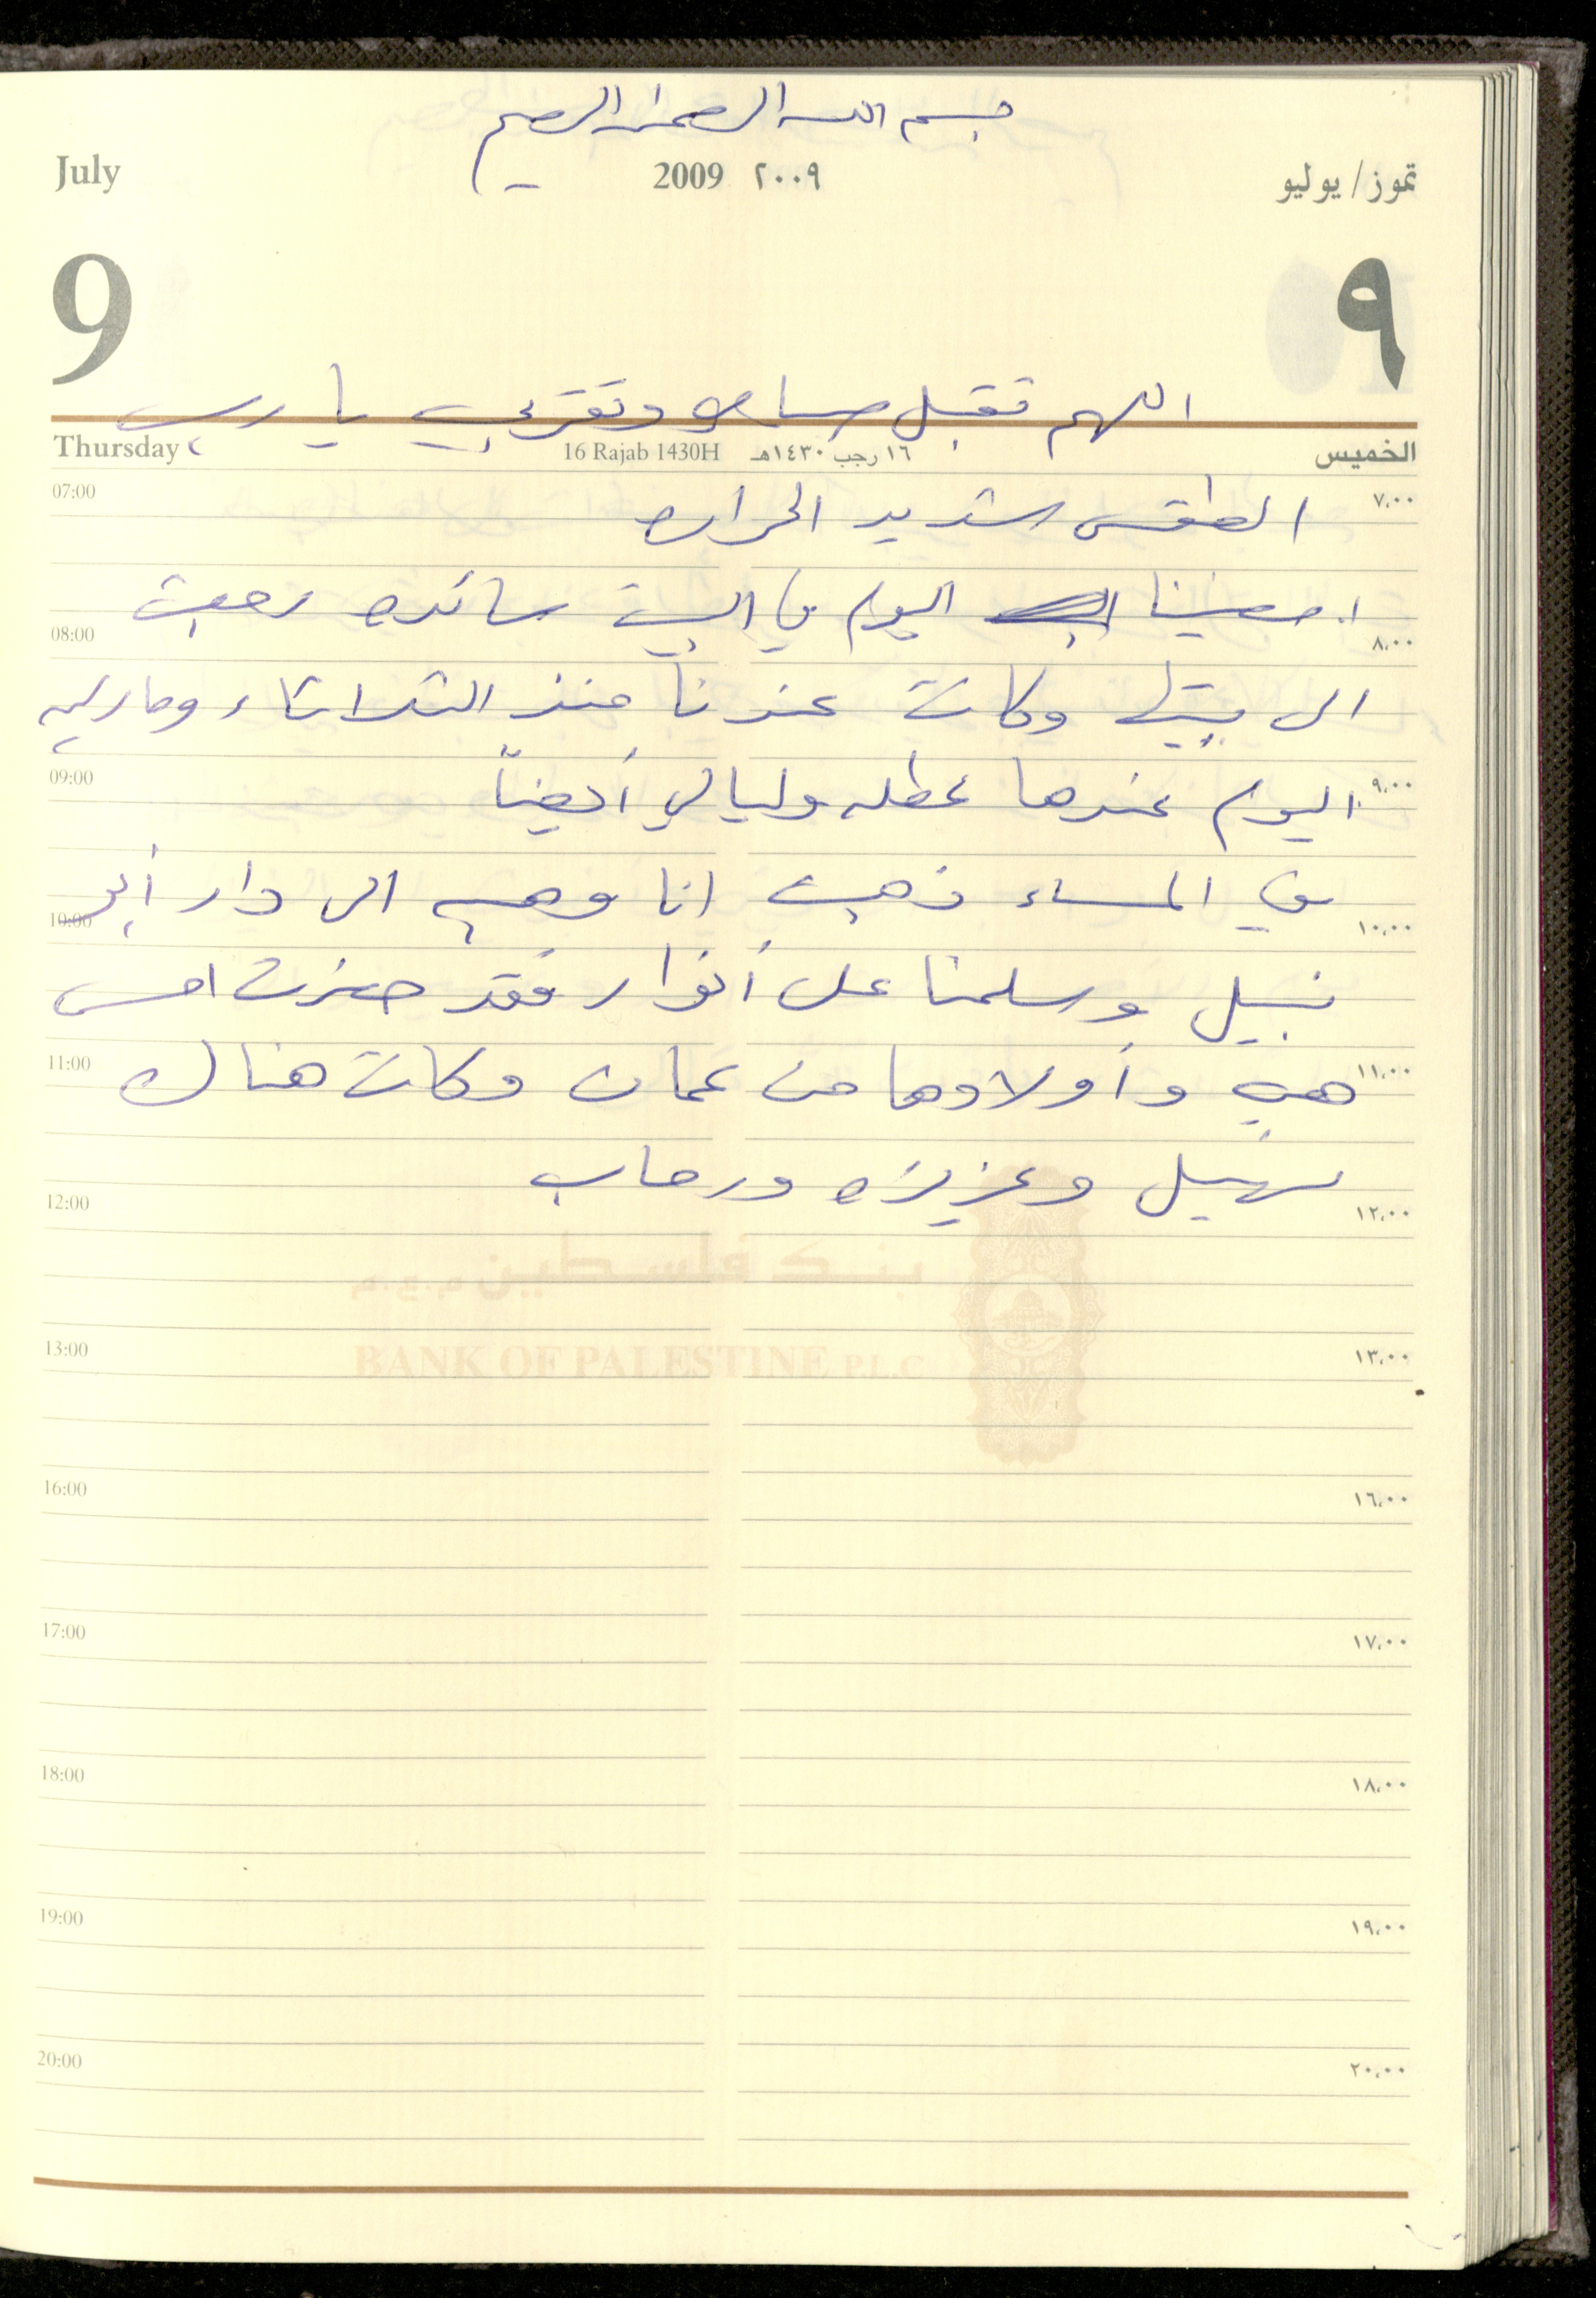 بسم الله الرحمن الرحيم
July 2009 ٢٠٠٩ تموز/يوليو
9 ٩
اللهم تقبل صيامي وتقربي يا رب
Thursday 16 Rajab 1430H ١٦ رجب ١٤٣٠هـ الخميس
07:00 ٧،٠٠
الطقس شديد الحراره
امضينا اليوم في البيت سائده رجعت
08:00 ٨،٠٠
الى بيتها وكانت عندنا منذ الثلاثاء وماريه
09:00 ٩،٠٠
اليوم عندها عطله وليالي أيضاً
في المساء ذهبت انا وهبه الى دار أبو
10:00 ١٠،٠٠
نبيل وسلمنا على أنوار فقد حضرت امس
11:00 ١١،٠٠
هي وأولادها من عمان وكانت هناك
سهيل وعزيزه ورحاب
12:00 ١٢،٠٠
بنك فلسطين م.ع.م
BANK OF PALESTINE P.L.C
13:00 ١٣،٠٠
16:00 ١٦،٠٠
17:00 ١٧،٠٠
18:00 ١٨،٠٠
19:00 ١٩،٠٠
20:00 ٢٠،٠٠